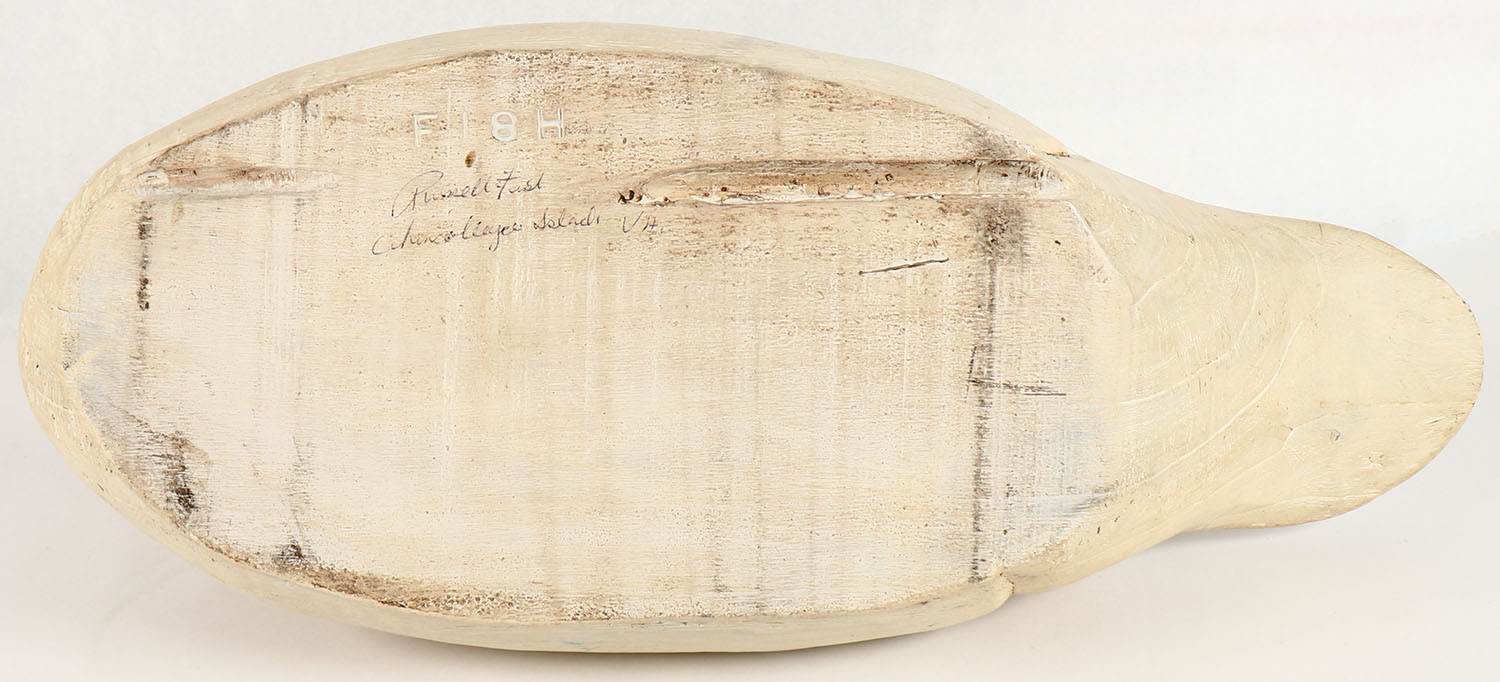 FISH
Russell Fish
Chincoteague Island VA.